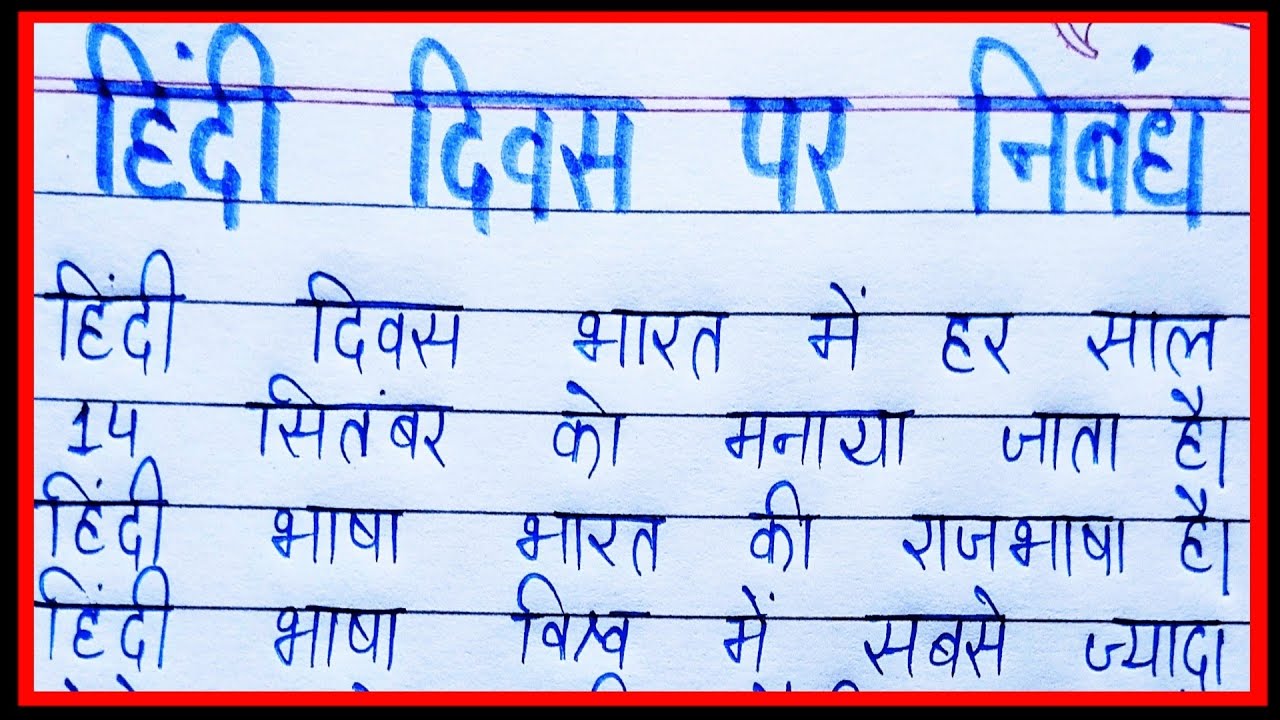 हिंदी दिवस पर निबंध
हिंदी दिवस भारत में हर साल
14 सितंबर को मनाया जाता है।
हिंदी भाषा भारत की राजभाषा है।
हिंदी भाषा विश्व में सबसे ज्यादा